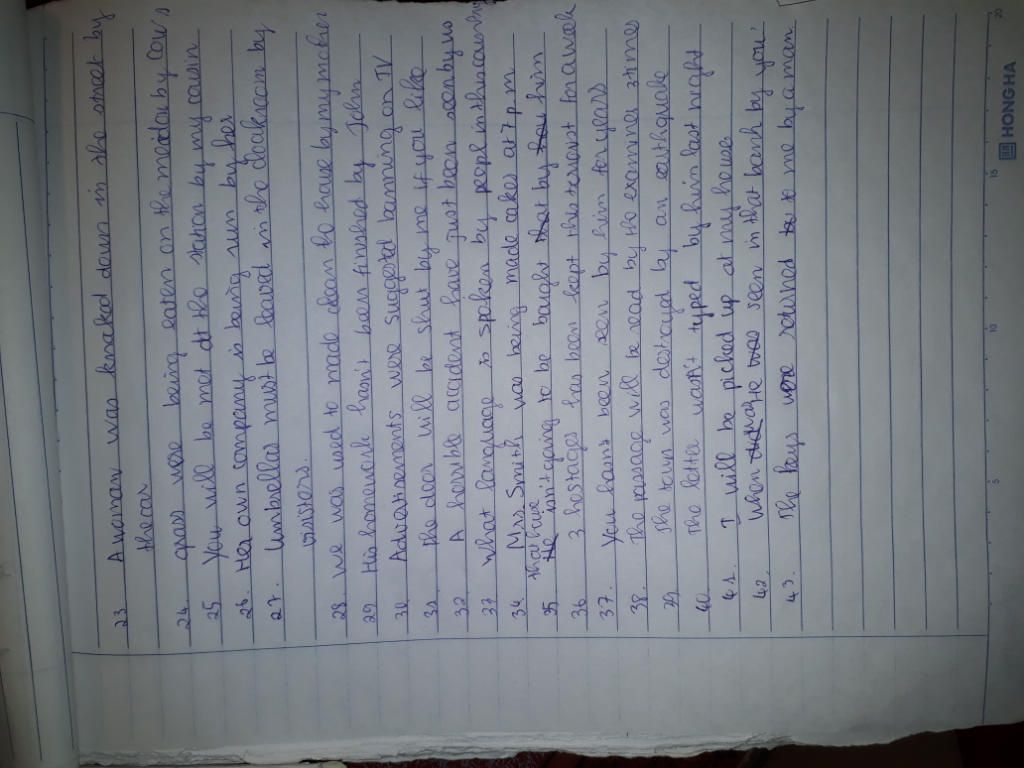 23. A woman was knocked down in the street by
the car
24. grass were being eaten on the meadow by cow's
25 You will be met at the station by my cousin
26. Her own company is being run by her
27. Umbrellas must be leaved in the cloakroom by
visitors.
28. we was used to made clean the house by my mother
29 His homework hasn't been finished by John
30 Advertisements were suggested banning on TV
31 the door will be shut by me if you like
32 A horrible accident have just been seen by us
33 what language is spoken by people in this country
34 Mrs. Smith was being made cakes at 7 p.m
that have
35 isn't going to be bought by him
36 3 hostages has been kept this terrorist for a week
37. You hasn't been seen by him for years
38 The passage will be read by the examiner 2 times
39. The town was destroyed by an earthquake
40. The letter wasn't typed by him last night
41. I will be picked up at my house
42. When the was seen in that bank by you
43. The keys were returned to me by a man
5
10
15
20
HONG HA